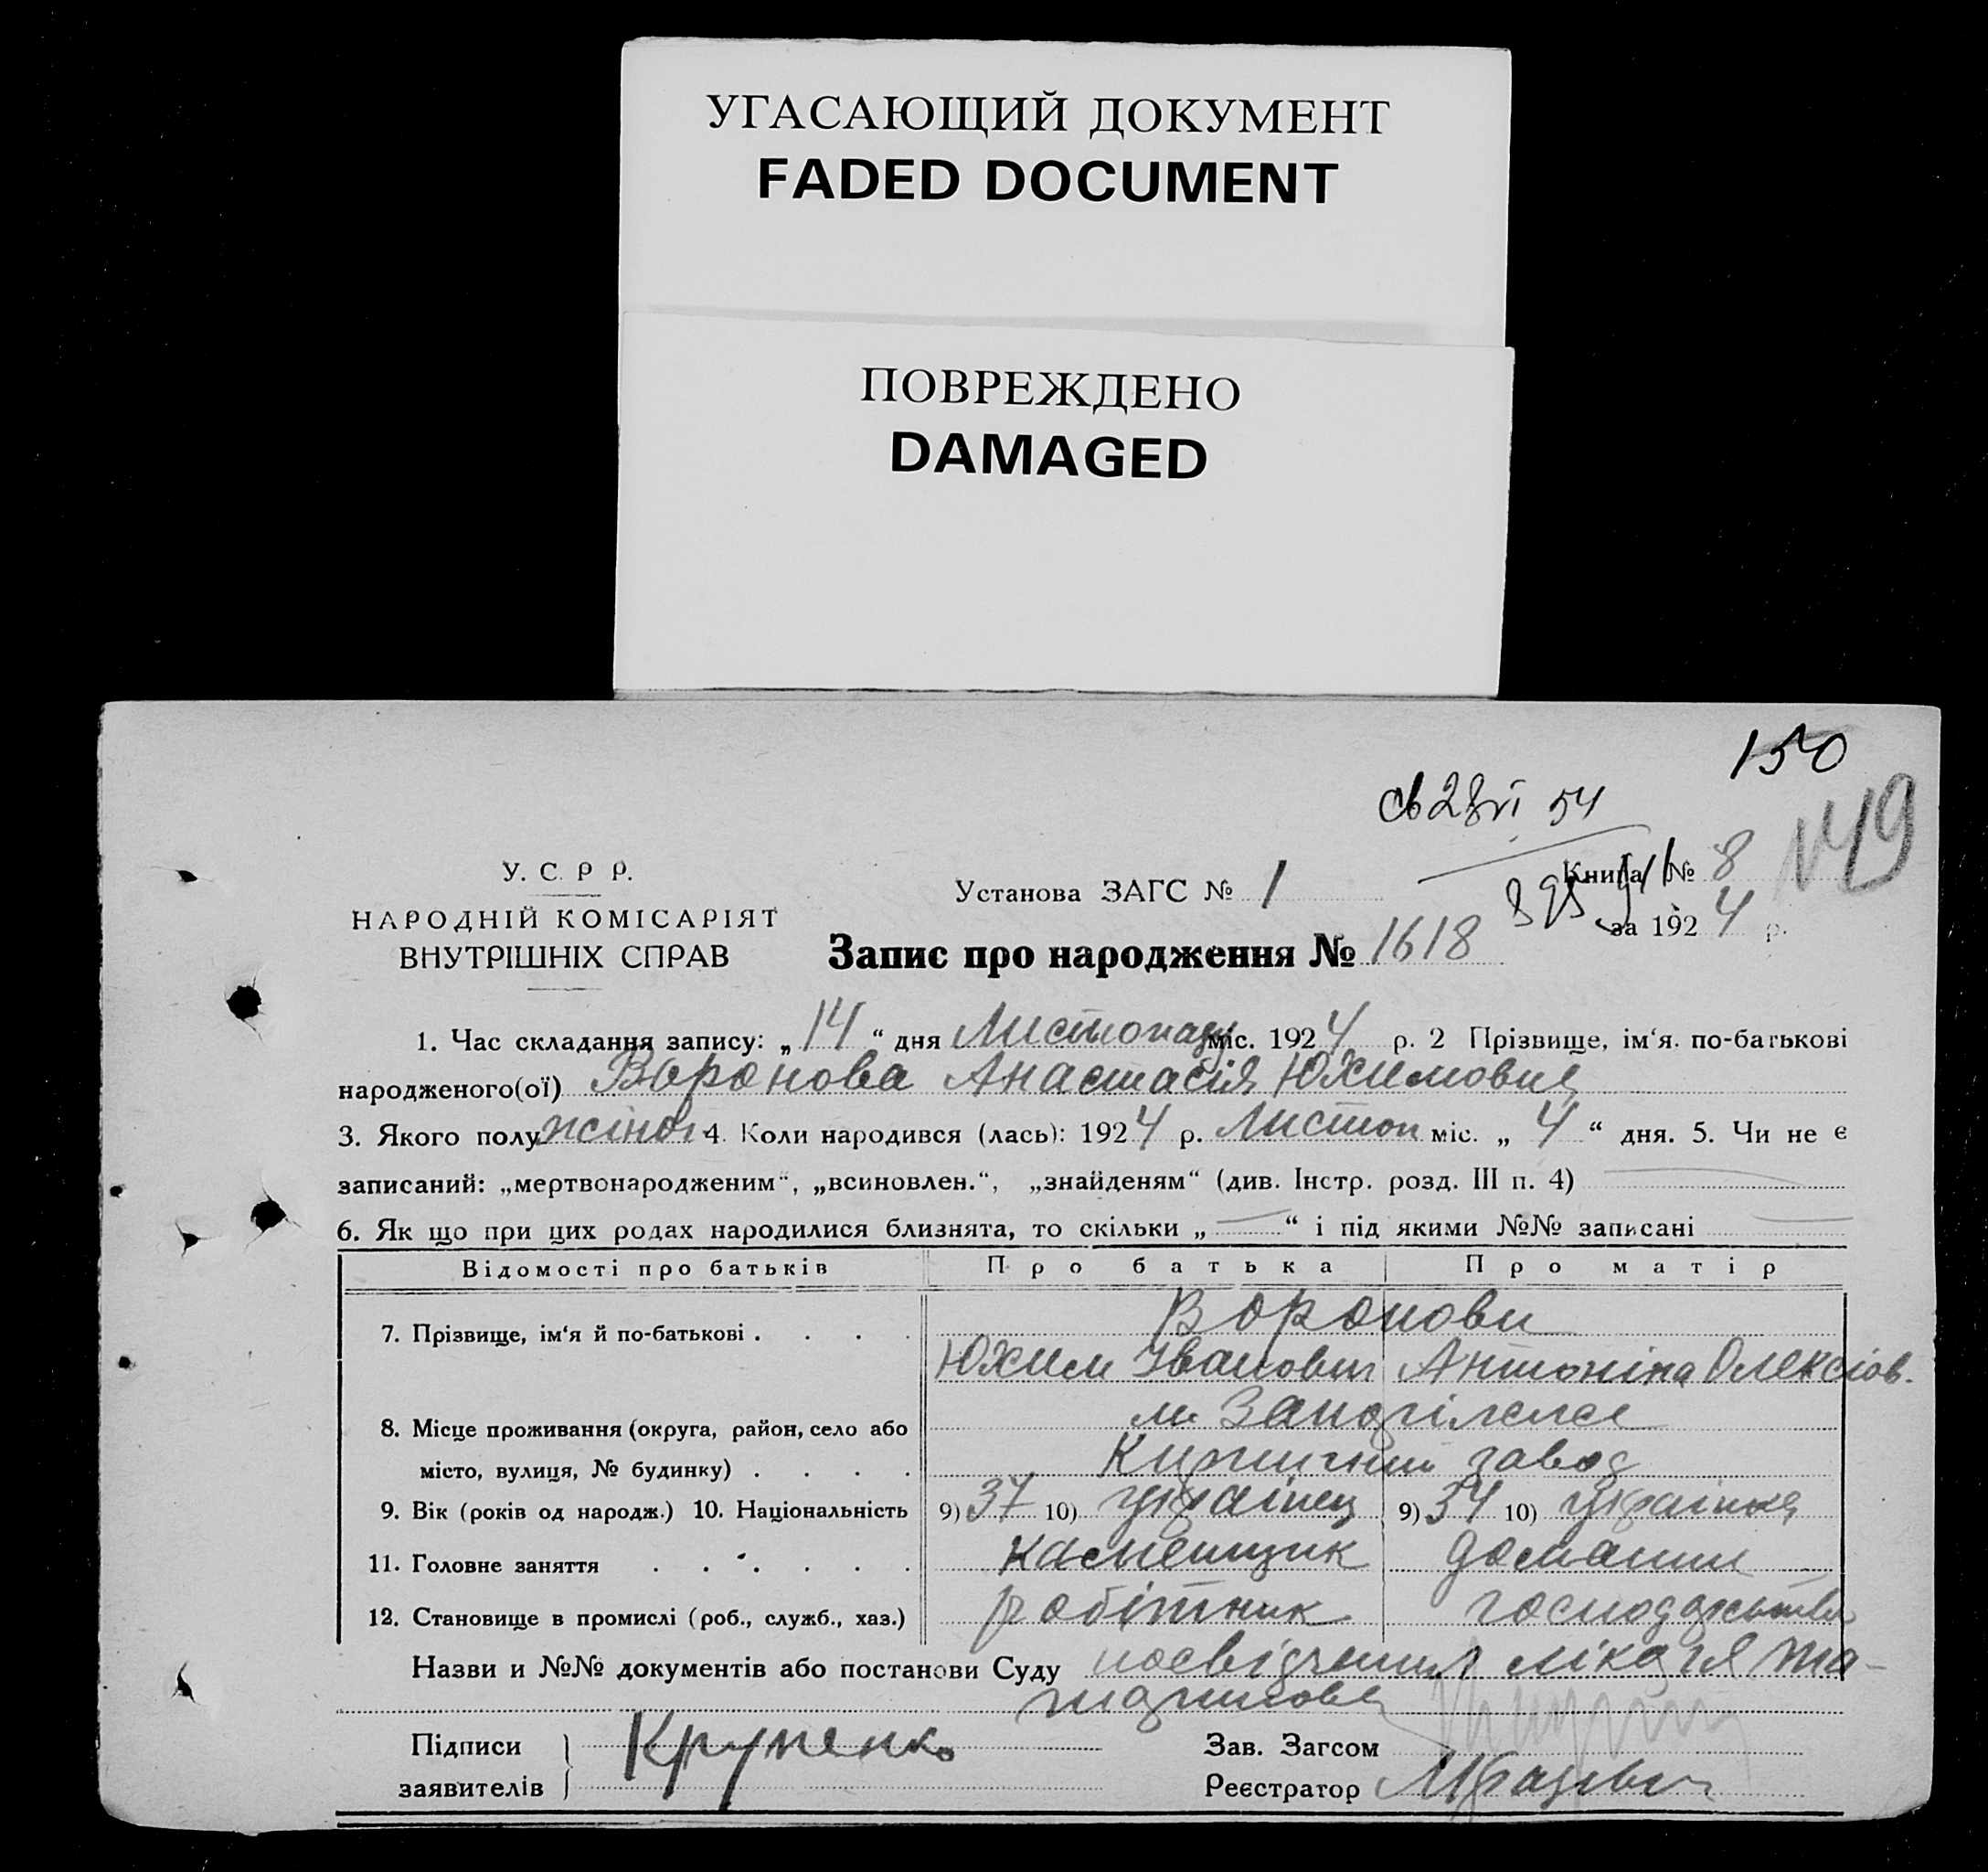 УГАСАЮЩИЙ ДОКУМЕНТ
FADED DOCUMENT
ПОВРЕЖДЕНО
DAMAGED
150
св 28 VI 54
149
У. С. Р Р.
НАРОДНІЙ КОМІСАРІЯТ
ВНУТРІШНІХ СПРАВ
Установа ЗАГС № 1
Книга № 8
за 1924 р.
Запис про народження № 1618
1. Час складання запису: „14“ дня Листопаду міс. 1924 р. 2 Прізвище, ім‘я. по-батькові
народженого(ої) Воронова Анастасія Юхимовна
3. Якого полу жіноч 4. Коли народився (лась): 1924 р. Листоп міс. „4“ дня. 5. Чи не є
записаний: „мертвонародженим“, „всиновлен.“, „знайденям“ (див. Інстр. розд. III п. 4)
6. Як що при цих родах народилися близнята, то скільки „—“ і під якими №№ записані —
Відомості про батьків Про батька Про матір
7. Прізвище, ім‘я й по-батькові . . . . Воронови
Юхим Іванович Антоніна Олексіов.
8. Місце проживання (округа, район, село або
місто, вулиця, № будинку) . . . . завод
9. Вік (років од народж.) 10. Національність 9) 37 10) українец 9) 34 10) українка
11. Головне заняття . . . . . . каменщик домашнє
12. Становище в промислі (роб., служб., хаз.) робітник господарство
Назви и №№ документів або постанови Суду посвідчення лікаря
Підписи
заявителів
Крупенко
Зав. Загсом
Реєстратор